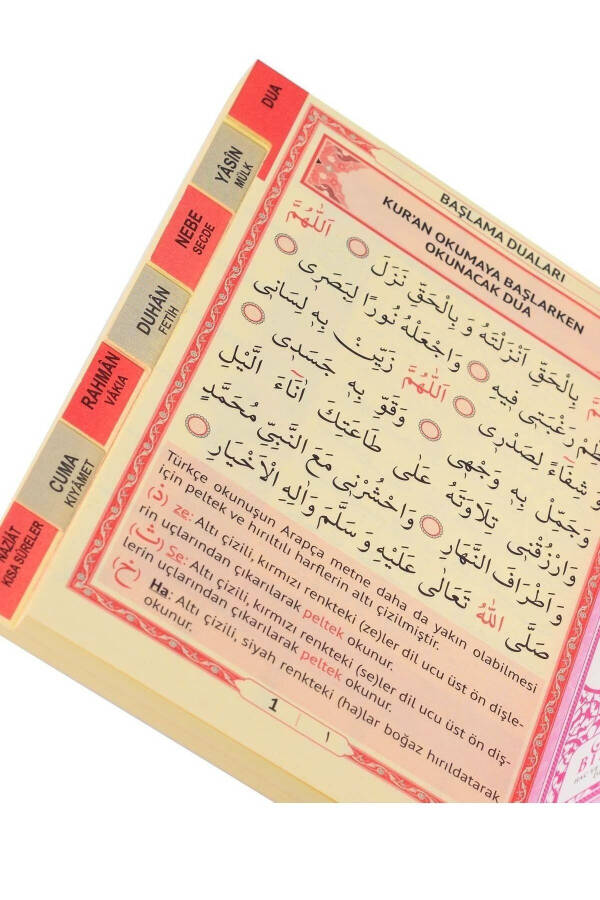 DUA
YÂSÎN
MÜLK
NEBE
SECDE
DUHÂN
FETİH
RAHMÂN
VÂKIA
CUMA
KIYÂMET
NAZİÂT
KISA SÛRELER
BAŞLAMA DUALARI
KUR'AN OKUMAYA BAŞLARKEN
OKUNACAK DUA
اَللّٰهُمَّ
بِالْحَقِّ اَنْزَلْتَهُ وَ بِالْحَقِّ نَزَلَ
رَغْبَتٖى فٖيهِ وَاجْعَلْهُ نُورًا لِبَصَرٖى
وَ شِفَٓاءً لِصَدْرٖى اَللّٰهُمَّ زَيِّنْ بِهٖ لِسَانٖى
وَجَمِّلْ بِهٖ وَجْهٖى وَقَوِّ بِهٖ جَسَدٖى
وَارْزُقْنٖى تِلَاوَتَهُ عَلٰى طَاعَتِكَ اٰنَٓاءَ الَّيْلِ
وَ اَطْرَافَ النَّهَارِ وَاحْشُرْنٖى مَعَ النَّبِىِّ مُحَمَّدٍ
صَلَّى اللّٰهُ تَعَالٰى عَلَيْهِ وَ سَلَّمَ وَاٰلِهِ الْاَخْيَارِ
Türkçe okunuşun Arapça metne daha da yakın olabilmesi
için peltek ve hırıltılı harflerin altı çizilmiştir.
(ذ) ze: Altı çizili, kırmızı renkteki (ze)ler dil ucu üst ön dişle-
rin uçlarından çıkarılarak peltek okunur.
(ث) Se: Altı çizili, kırmızı renkteki (se)ler dil ucu üst ön diş-
lerin uçlarından çıkarılarak peltek okunur.
(خ) Ha: Altı çizili, siyah renkteki (ha)lar boğaz hırıldatarak
okunur.
1 | ١